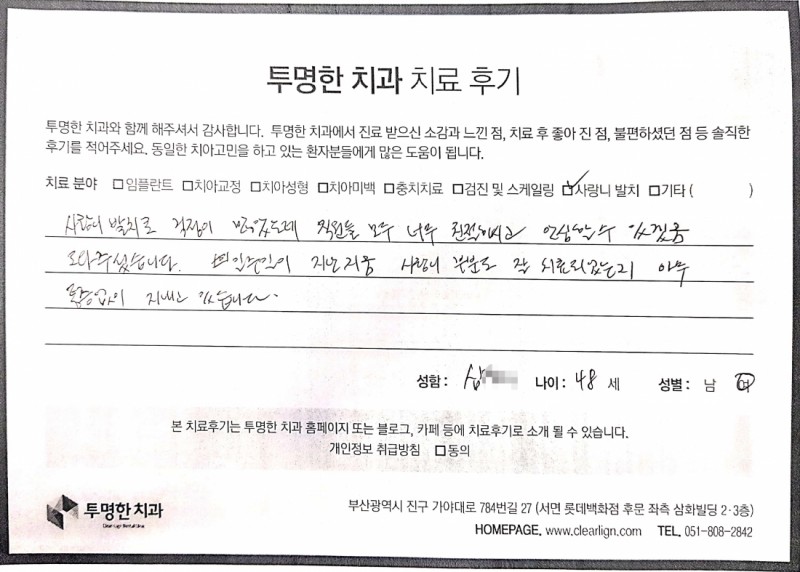 투명한 치과 치료 후기
투명한 치과와 함께 해주셔서 감사합니다. 투명한 치과에서 진료 받으신 소감과 느낀 점, 치료 후 좋아 진 점, 불편하셨던 점 등 솔직한
후기를 적어주세요. 동일한 치아고민을 하고 있는 환자분들에게 많은 도움이 됩니다.
치료 분야 □임플란트 □치아교정 □치아성형 □치아미백 □충치치료 □검진 및 스케일링 ☑사랑니 발치 □기타 ( )
사랑니 발치로 걱정이 많았는데 직원들 모두 너무 친절하시고 안심할수 있게끔
도와주셨습니다. 지난지금 사랑니 부분도 잘 치료되었는지 아무
통증없이 지내고 있습니다.
성함 : 나이 : 48 세 성별 : 남 여
본 치료후기는 투명한 치과 홈페이지 또는 블로그, 카페 등에 치료후기로 소개 될 수 있습니다.
개인정보 취급방침 □동의
투명한 치과
부산광역시 진구 가야대로 784번길 27 (서면 롯데백화점 후문 좌측 삼화빌딩 2·3층)
HOMEPAGE. www.clearlign.com TEL. 051-808-2842